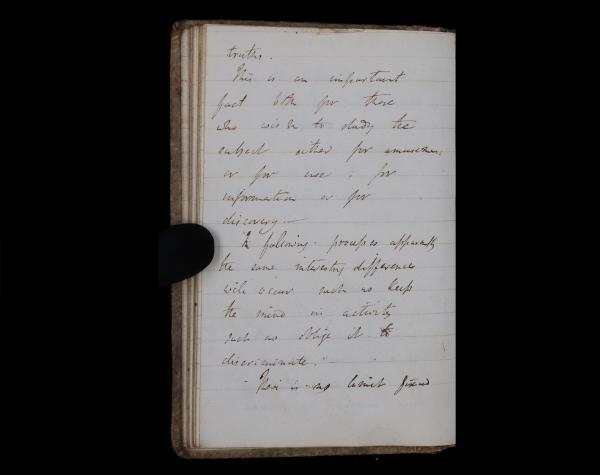 truths.
This is an important
fact both for those
who wish to study the
subject either for amusement
or for use; for
information or for
discovery.—
In following processes apparently
the same interesting differences
will occur such as keep
the mind in activity
such as oblige it to
discriminate."—
"There is no limit fixed